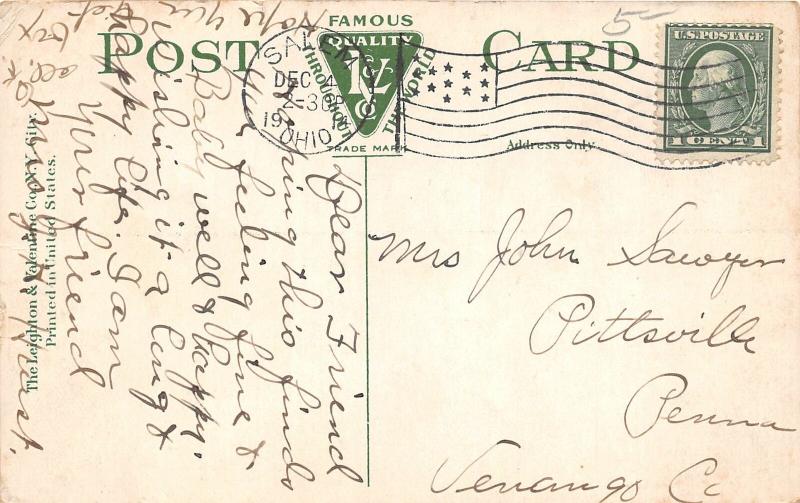 POST CARD
FAMOUS
QUALITY
THROUGHOUT
THE WORLD
L&V
Co
TRADE MARK
SALEM
DEC 4
2-30P
19
OHIO
U.S. POSTAGE
1 CENT 1
5-
Address Only
Mrs John Sawyer
Pittsville
Penna
Venango Co
Dear Friend
this finds
you feeling fine &
Baby well & happy.
Wishing it a long &
happy life. I am
your friend
Hope you
get
all
The Leighton & Valentine Co. N.Y. City.
Printed in United States.